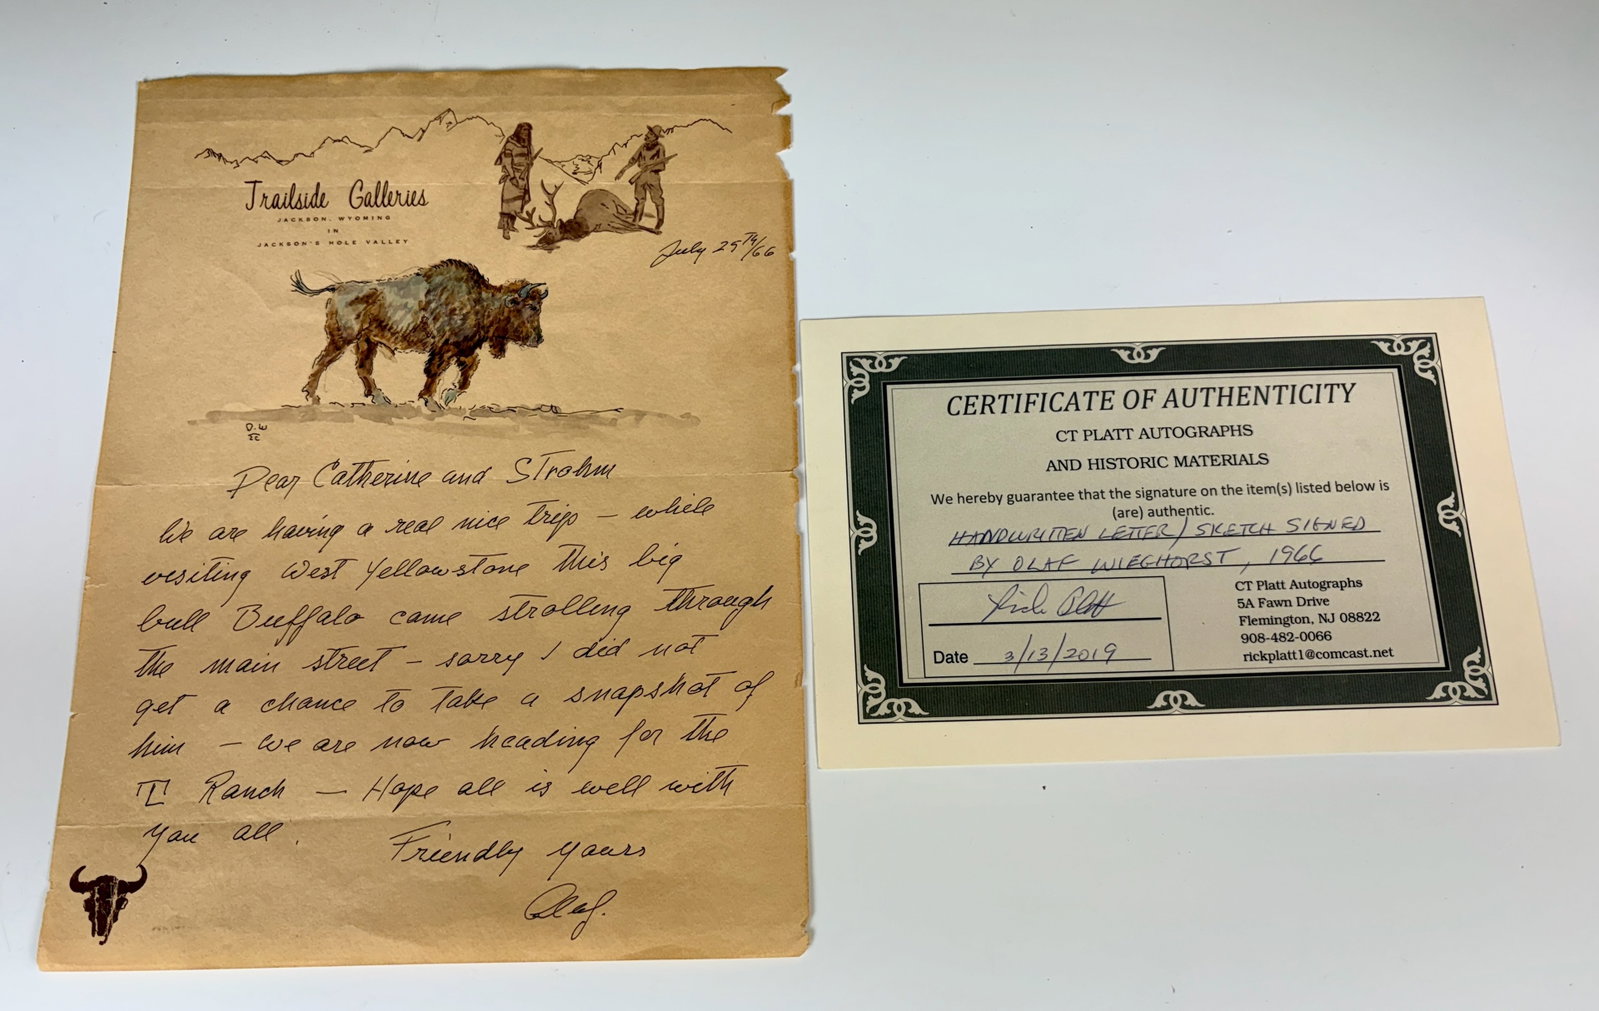 Trailside Galleries
JACKSON, WYOMING
IN
JACKSON'S HOLE VALLEY
July 29TH/66
O.W
Dear Catherine and Strohm
We are having a real nice trip – while
visiting West Yellowstone this big
bull Buffalo came strolling through
the main street – sorry I did not
get a chance to take a snapshot of
him – We are now heading for the
Ranch — Hope all is well with
you all.
Friendly yours
Olaf.
CERTIFICATE OF AUTHENTICITY
CT PLATT AUTOGRAPHS
AND HISTORIC MATERIALS
We hereby guarantee that the signature on the item(s) listed below is
(are) authentic.
HANDWRITTEN LETTER/SKETCH SIGNED
BY OLAF WIEGHORST, 1966
Rick Platt
Date 3/13/2019
CT Platt Autographs
5A Fawn Drive
Flemington, NJ 08822
908-482-0066
rickplatt1@comcast.net